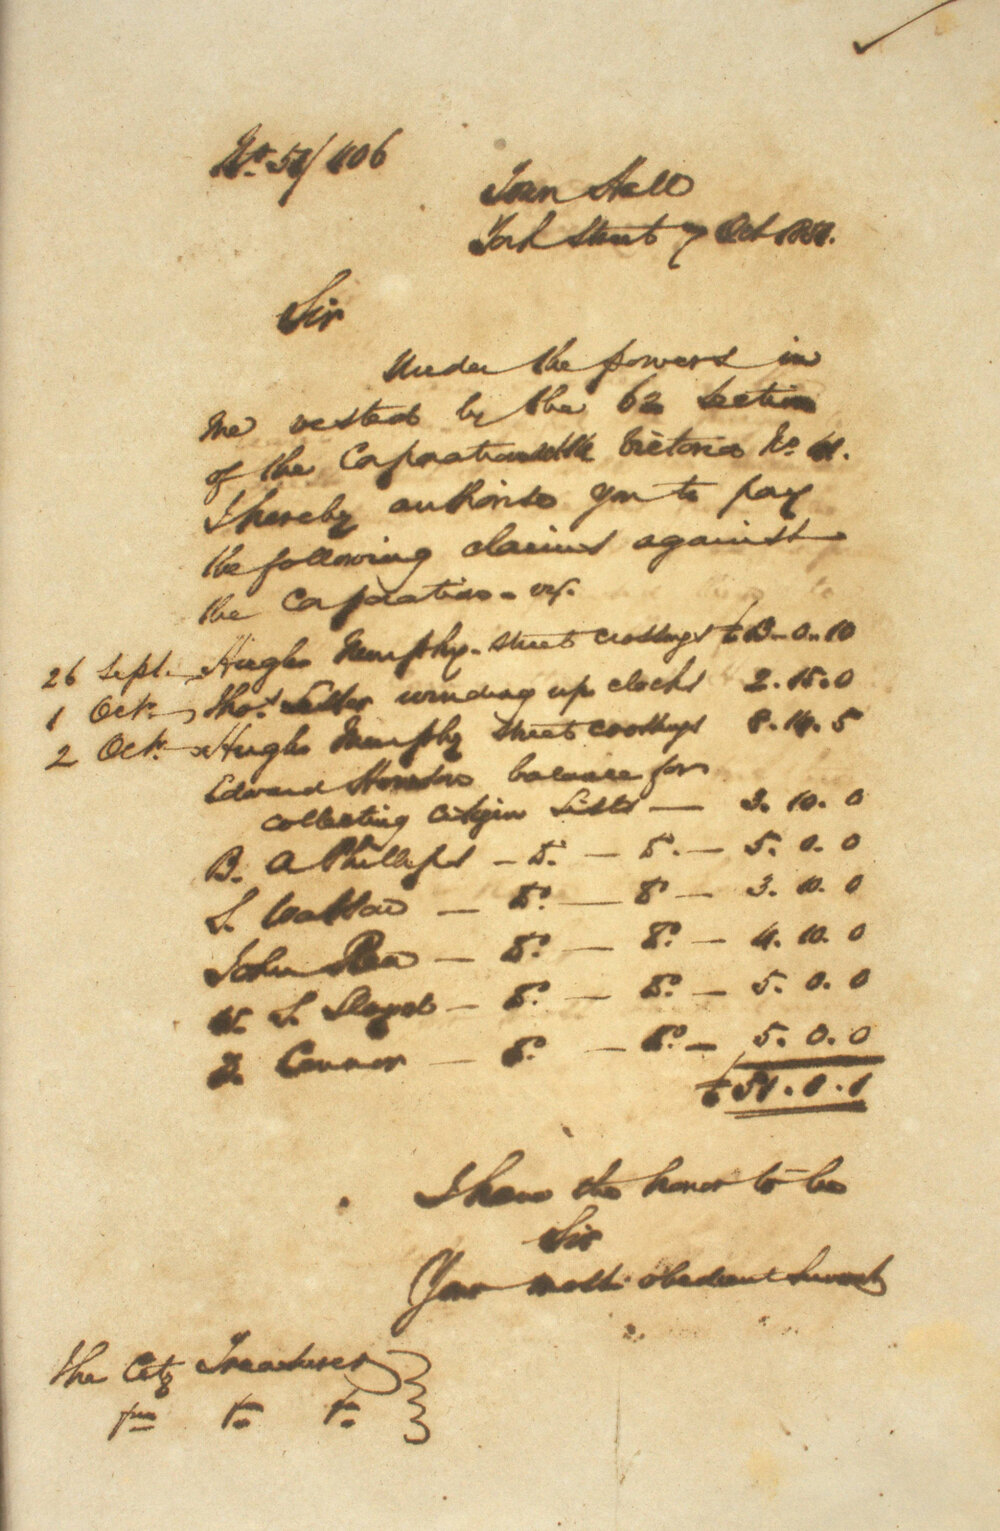 No. 51/106
Town Hall
York Street 7 Oct 1851.
Sir
Under the powers in
me vested by the 62 section
of the Corporation Victoria No. 41.
I hereby authorise you to pay
the following claims against
the Corporation - viz.
26 Sept. Hugh Murphy. Street crossings £13-0-10
1 Octr. Thos. winding up clocks 2.15.0
2 Octr. Hugh Murphy street crossings 8.14.5
Edward balance for
collecting Citizen Lists — 3. 10. 0
B. A Phillips - Do. — Do. — 5. 0. 0
S. Watson — Do. — Do — 3. 10. 0
John Rea — Do. — Do. — 4. 10. 0
W. S. Lloyd — Do. — Do. — 5. 0. 0
J. Connor — Do. — Do. — 5. 0. 0
£51.0.1
I have the honor to be
Sir
Your most obedient Servant
The City Treasurer